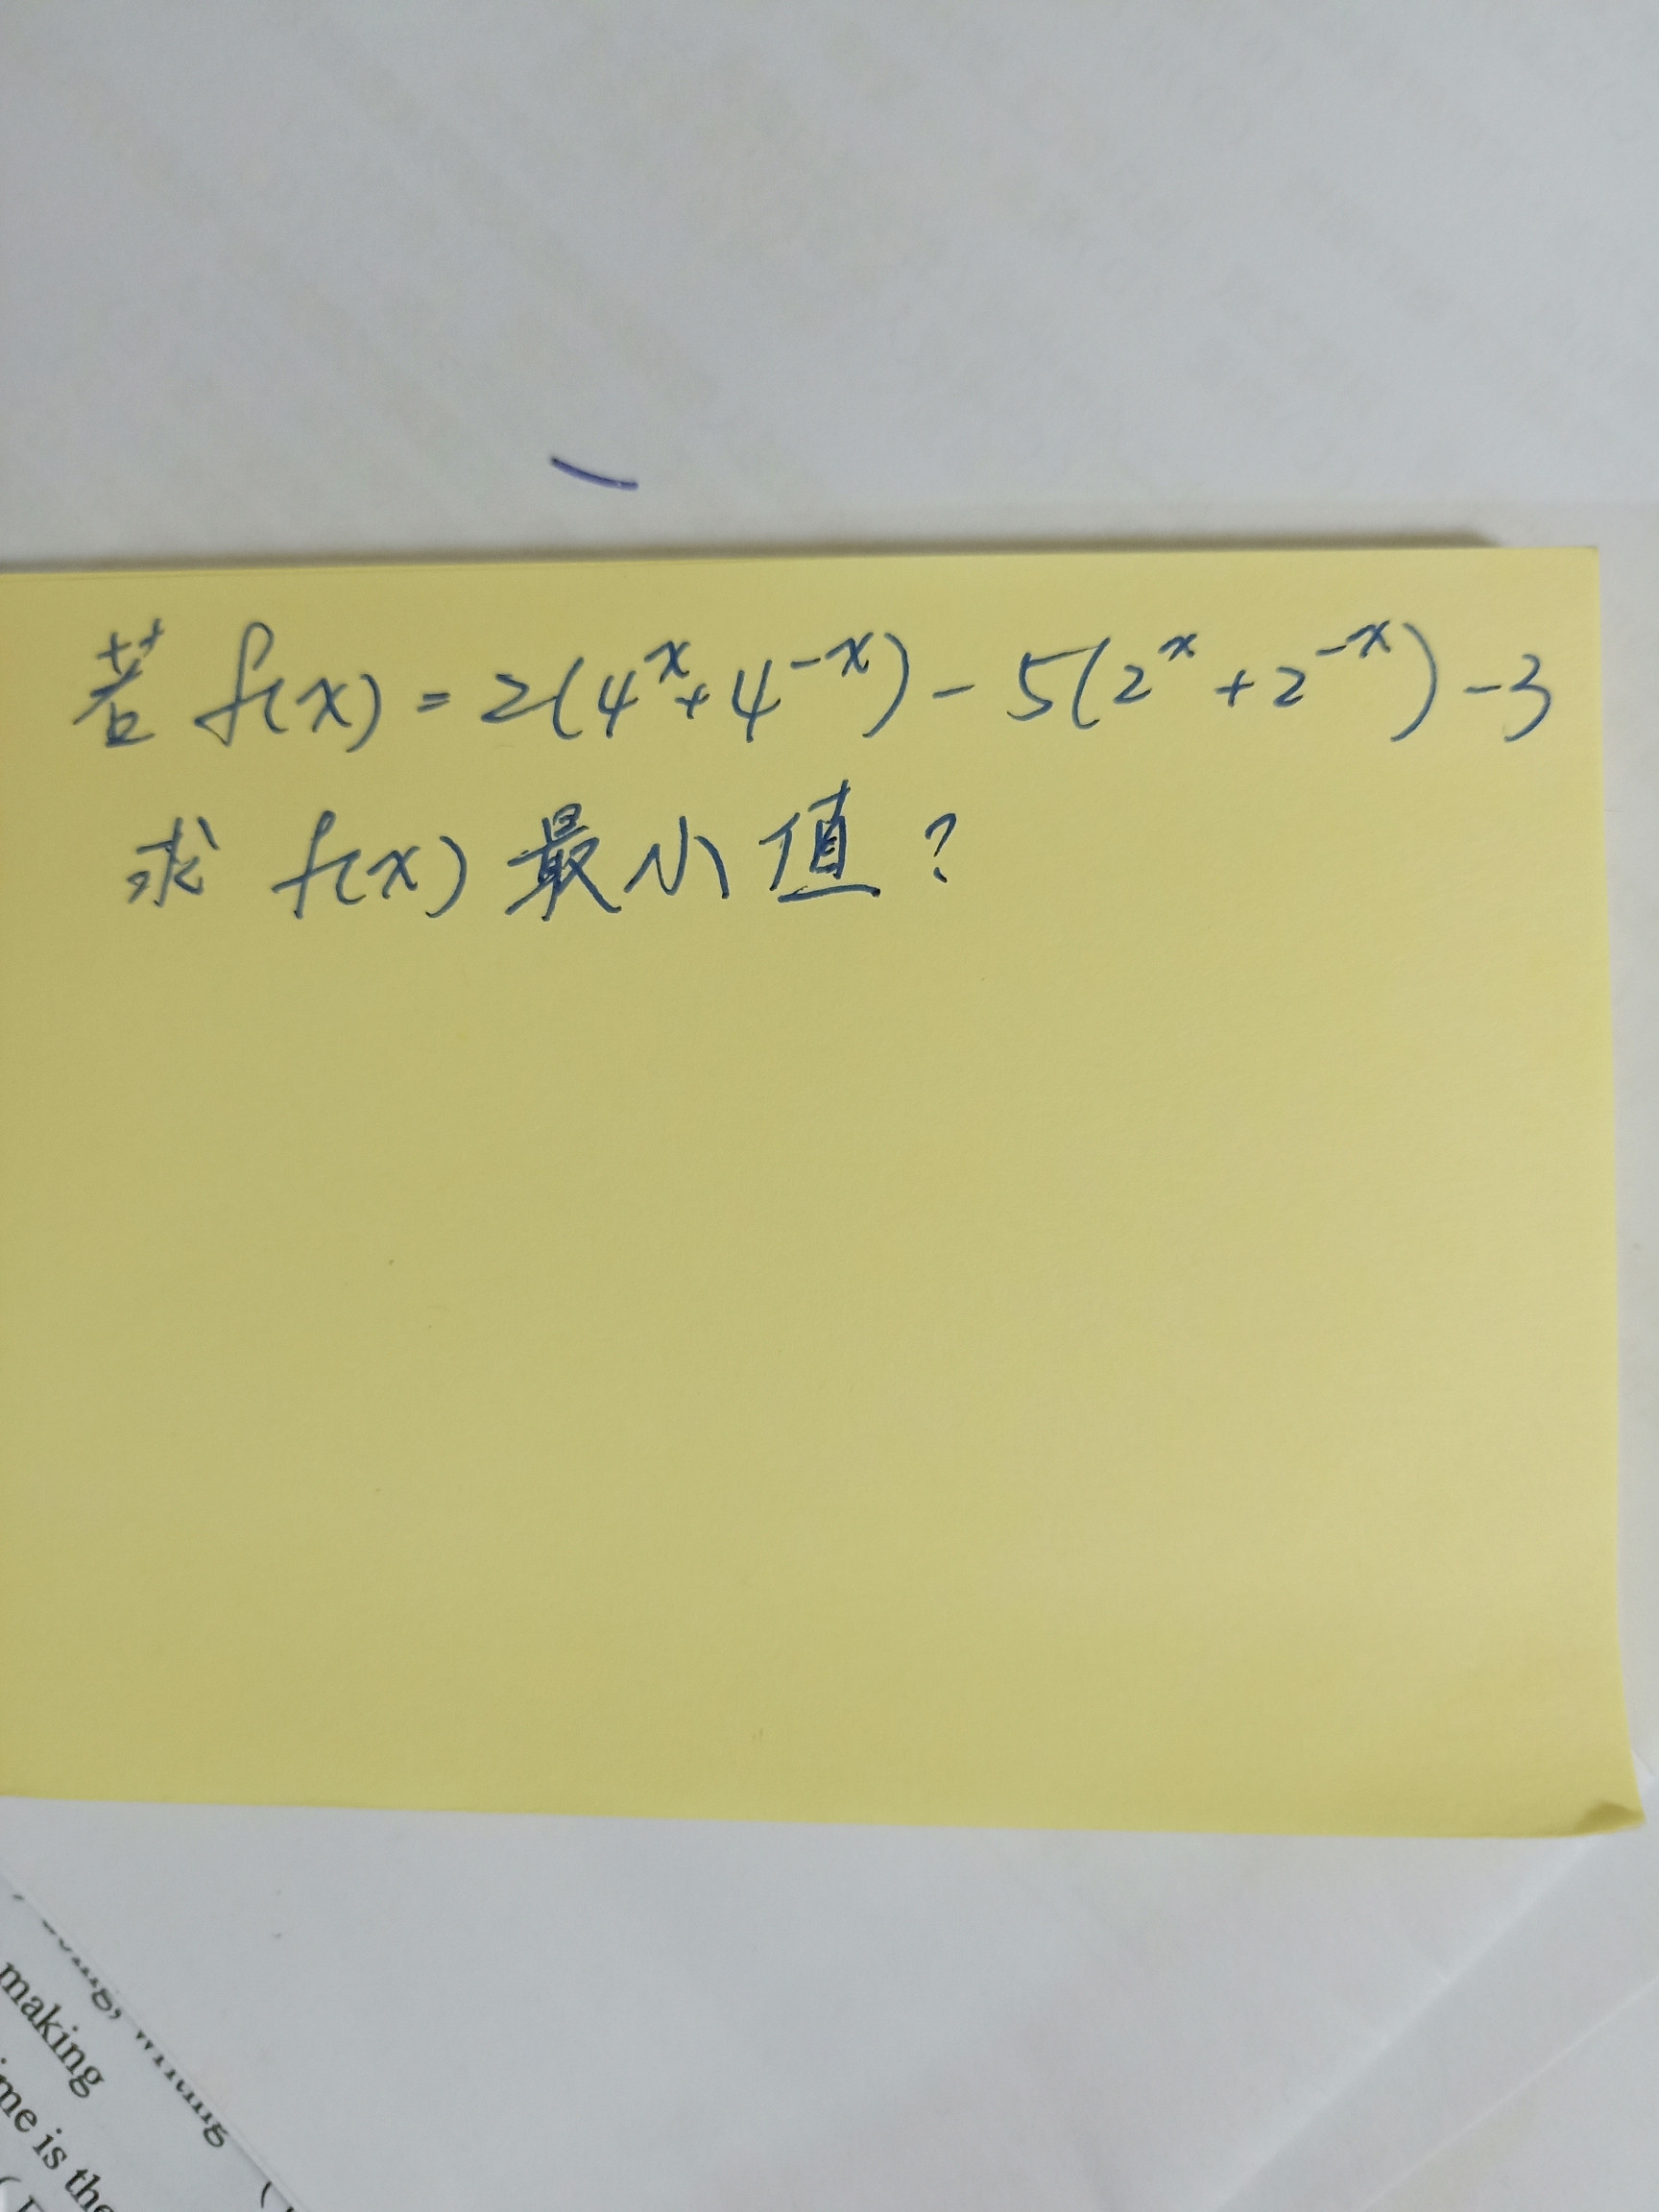 若 f(x) = 2(4^x + 4^-x) - 5(2^x + 2^-x) - 3
求 f(x) 最小值?
making
is the